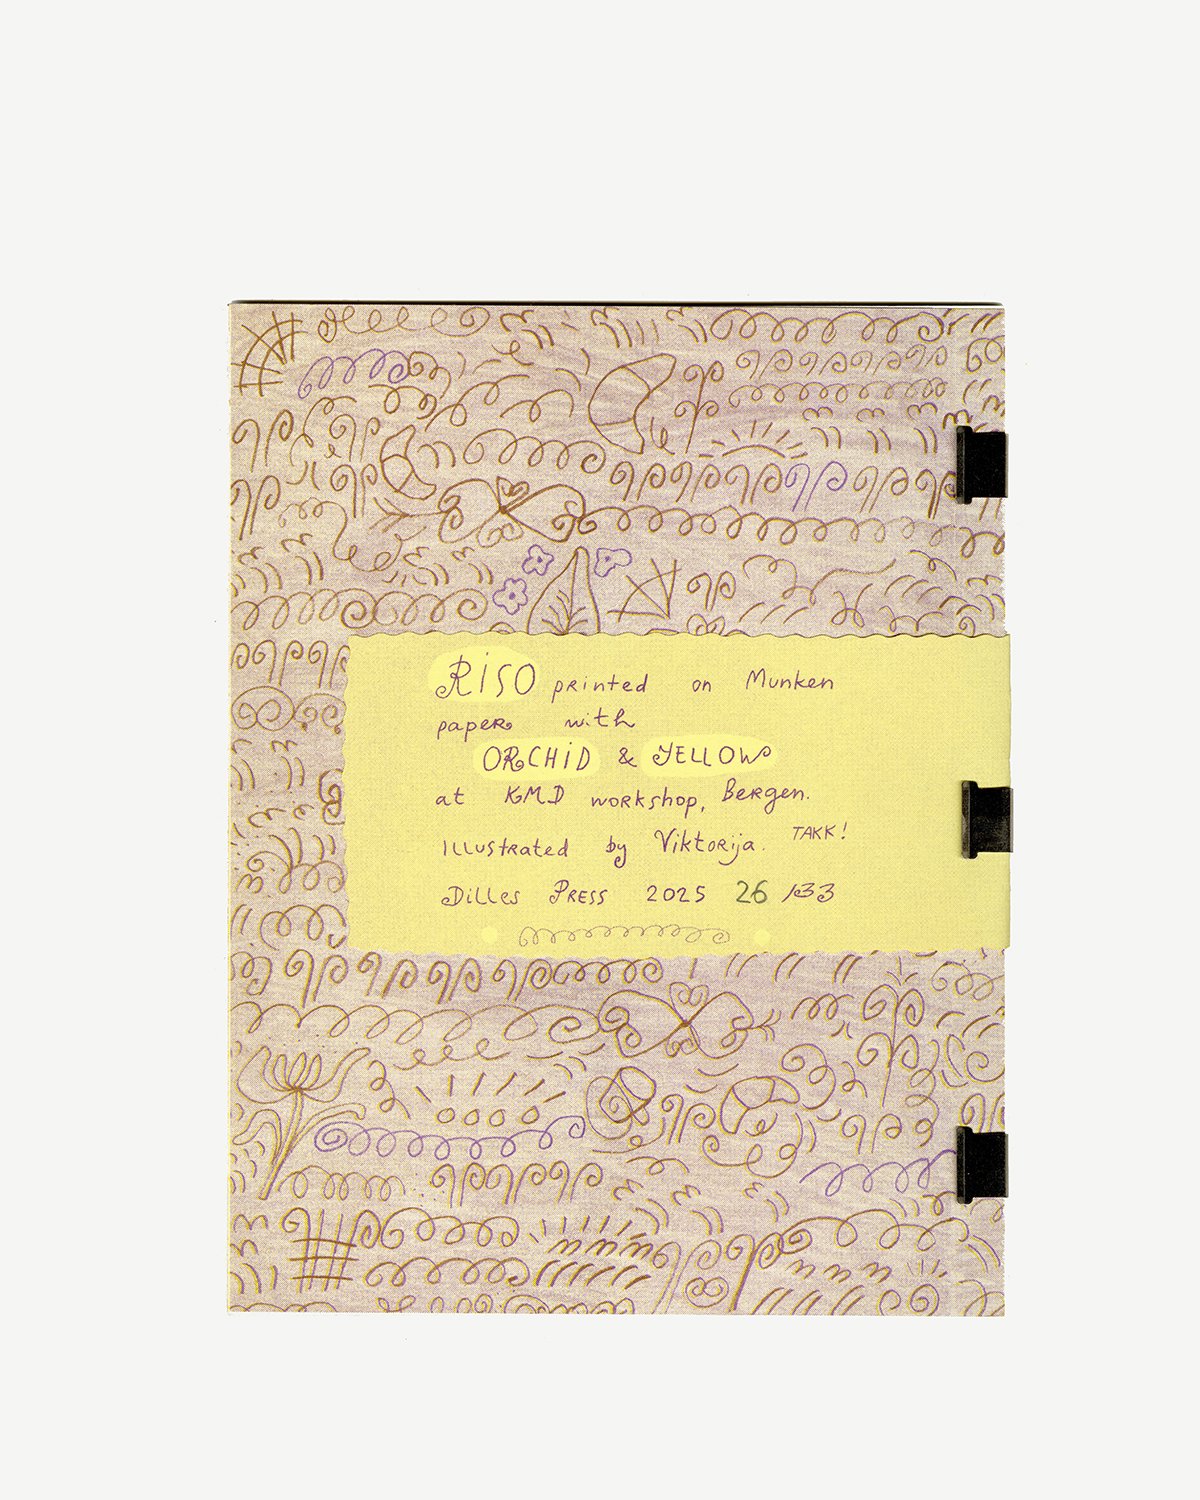 RISO printed on Munken
paper with
ORCHID & YELLOW
at KMD workshop, Bergen.
Illustrated by Viktorija. TAKK!
Dilles Press 2025 26 /33